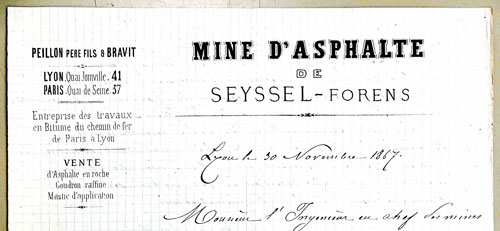 PEILLON PERE FILS & BRAVIT
LYON. Quai Joinville. 41
PARIS. Quai de Seine. 37
Entreprise des travaux
en Bitume du chemin de fer
de Paris à Lyon
VENTE
d'Asphalte en roche
Goudron raffiné
Mastic d'application
MINE D'ASPHALTE
DE
SEYSSEL-FORENS
Lyon le 30 Novembre 1867.
Monsieur l'Ingenieur en chef des mines